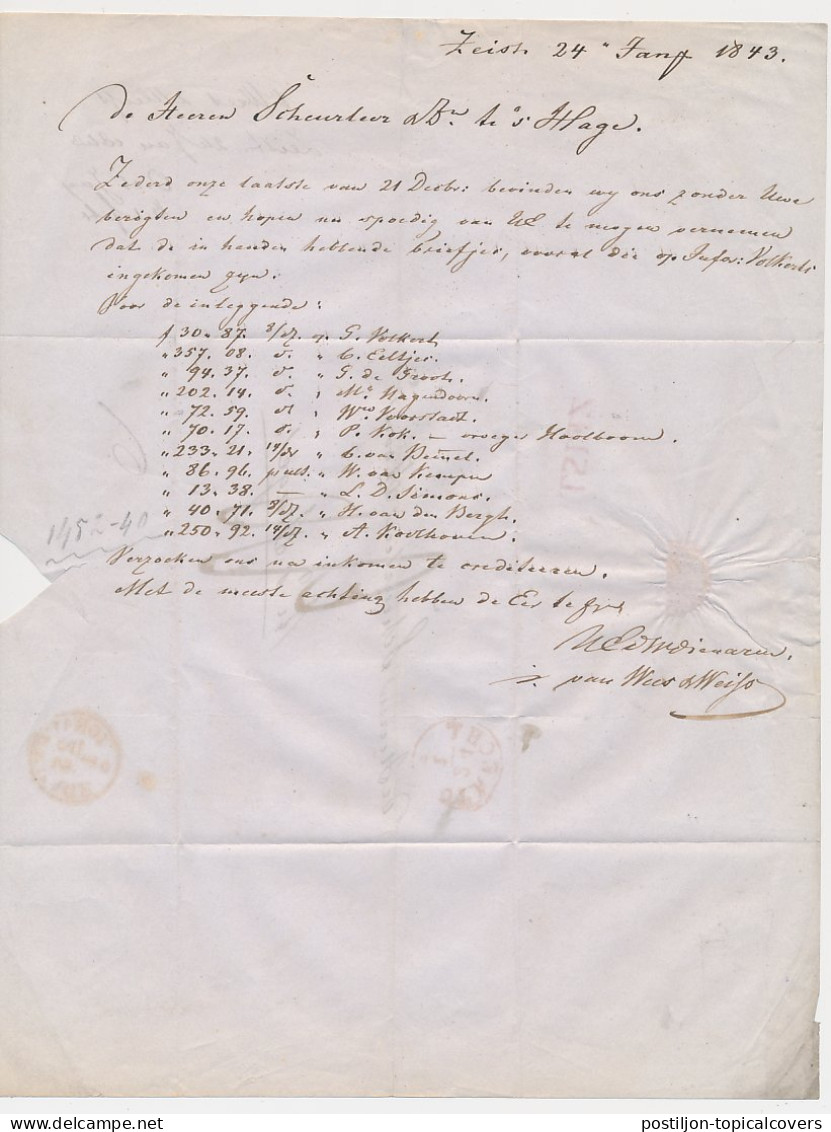 Zeist 24 " Jany 1843.
De Heeren Scheurleer & Zn. te 's Hage.
Zederd onze laatste van 21 Decbr: bevinden wy ons zonder Uwe
berigten en hopen nu spoedig van UE te mogen vernemen
dat de in handen hebbende briefjes, vooral die op Jufvr: Volkerts
ingekomen zyn.
Voor de inleggende:
f 30. 87. G. Volkert
" 357. 08. d. " C. Eeltjes.
" 94. 37. d. " G. de Groot.
" 202. 14. d. " Mr. Hagendoorn.
" 72. 59. d " Wed Voorstadt.
" 70. 17. d. " P. Kok. — vroeger Hoolboom.
" 233. 21. " C. van Bemmel.
" 86. 96. " W. van Kempen
" 13. 38. — " L. D. Simons.
" 40. 71. " H. van den Bergh.
" 250. 92. " A. Kolthoven.
1452-40
Verzoeken ons na inkomen te crediteeren.
Met de meeste achting hebben de Eer te zyn
UEdWDienaren.
van Wees & Weiss
postiljon-topicalcovers